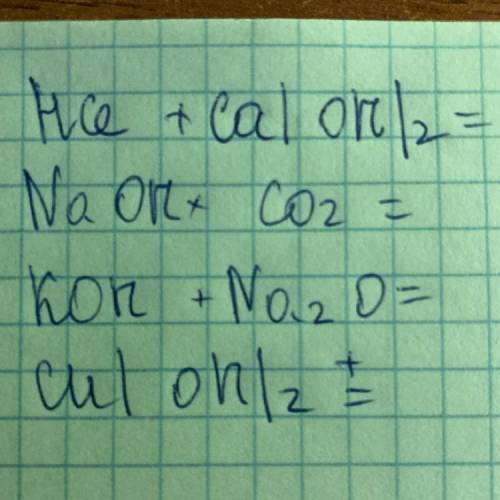 HCl + Ca(OH)2 =
NaOH + CO2 =
KOH + Na2O =
Cu(OH)2 t=